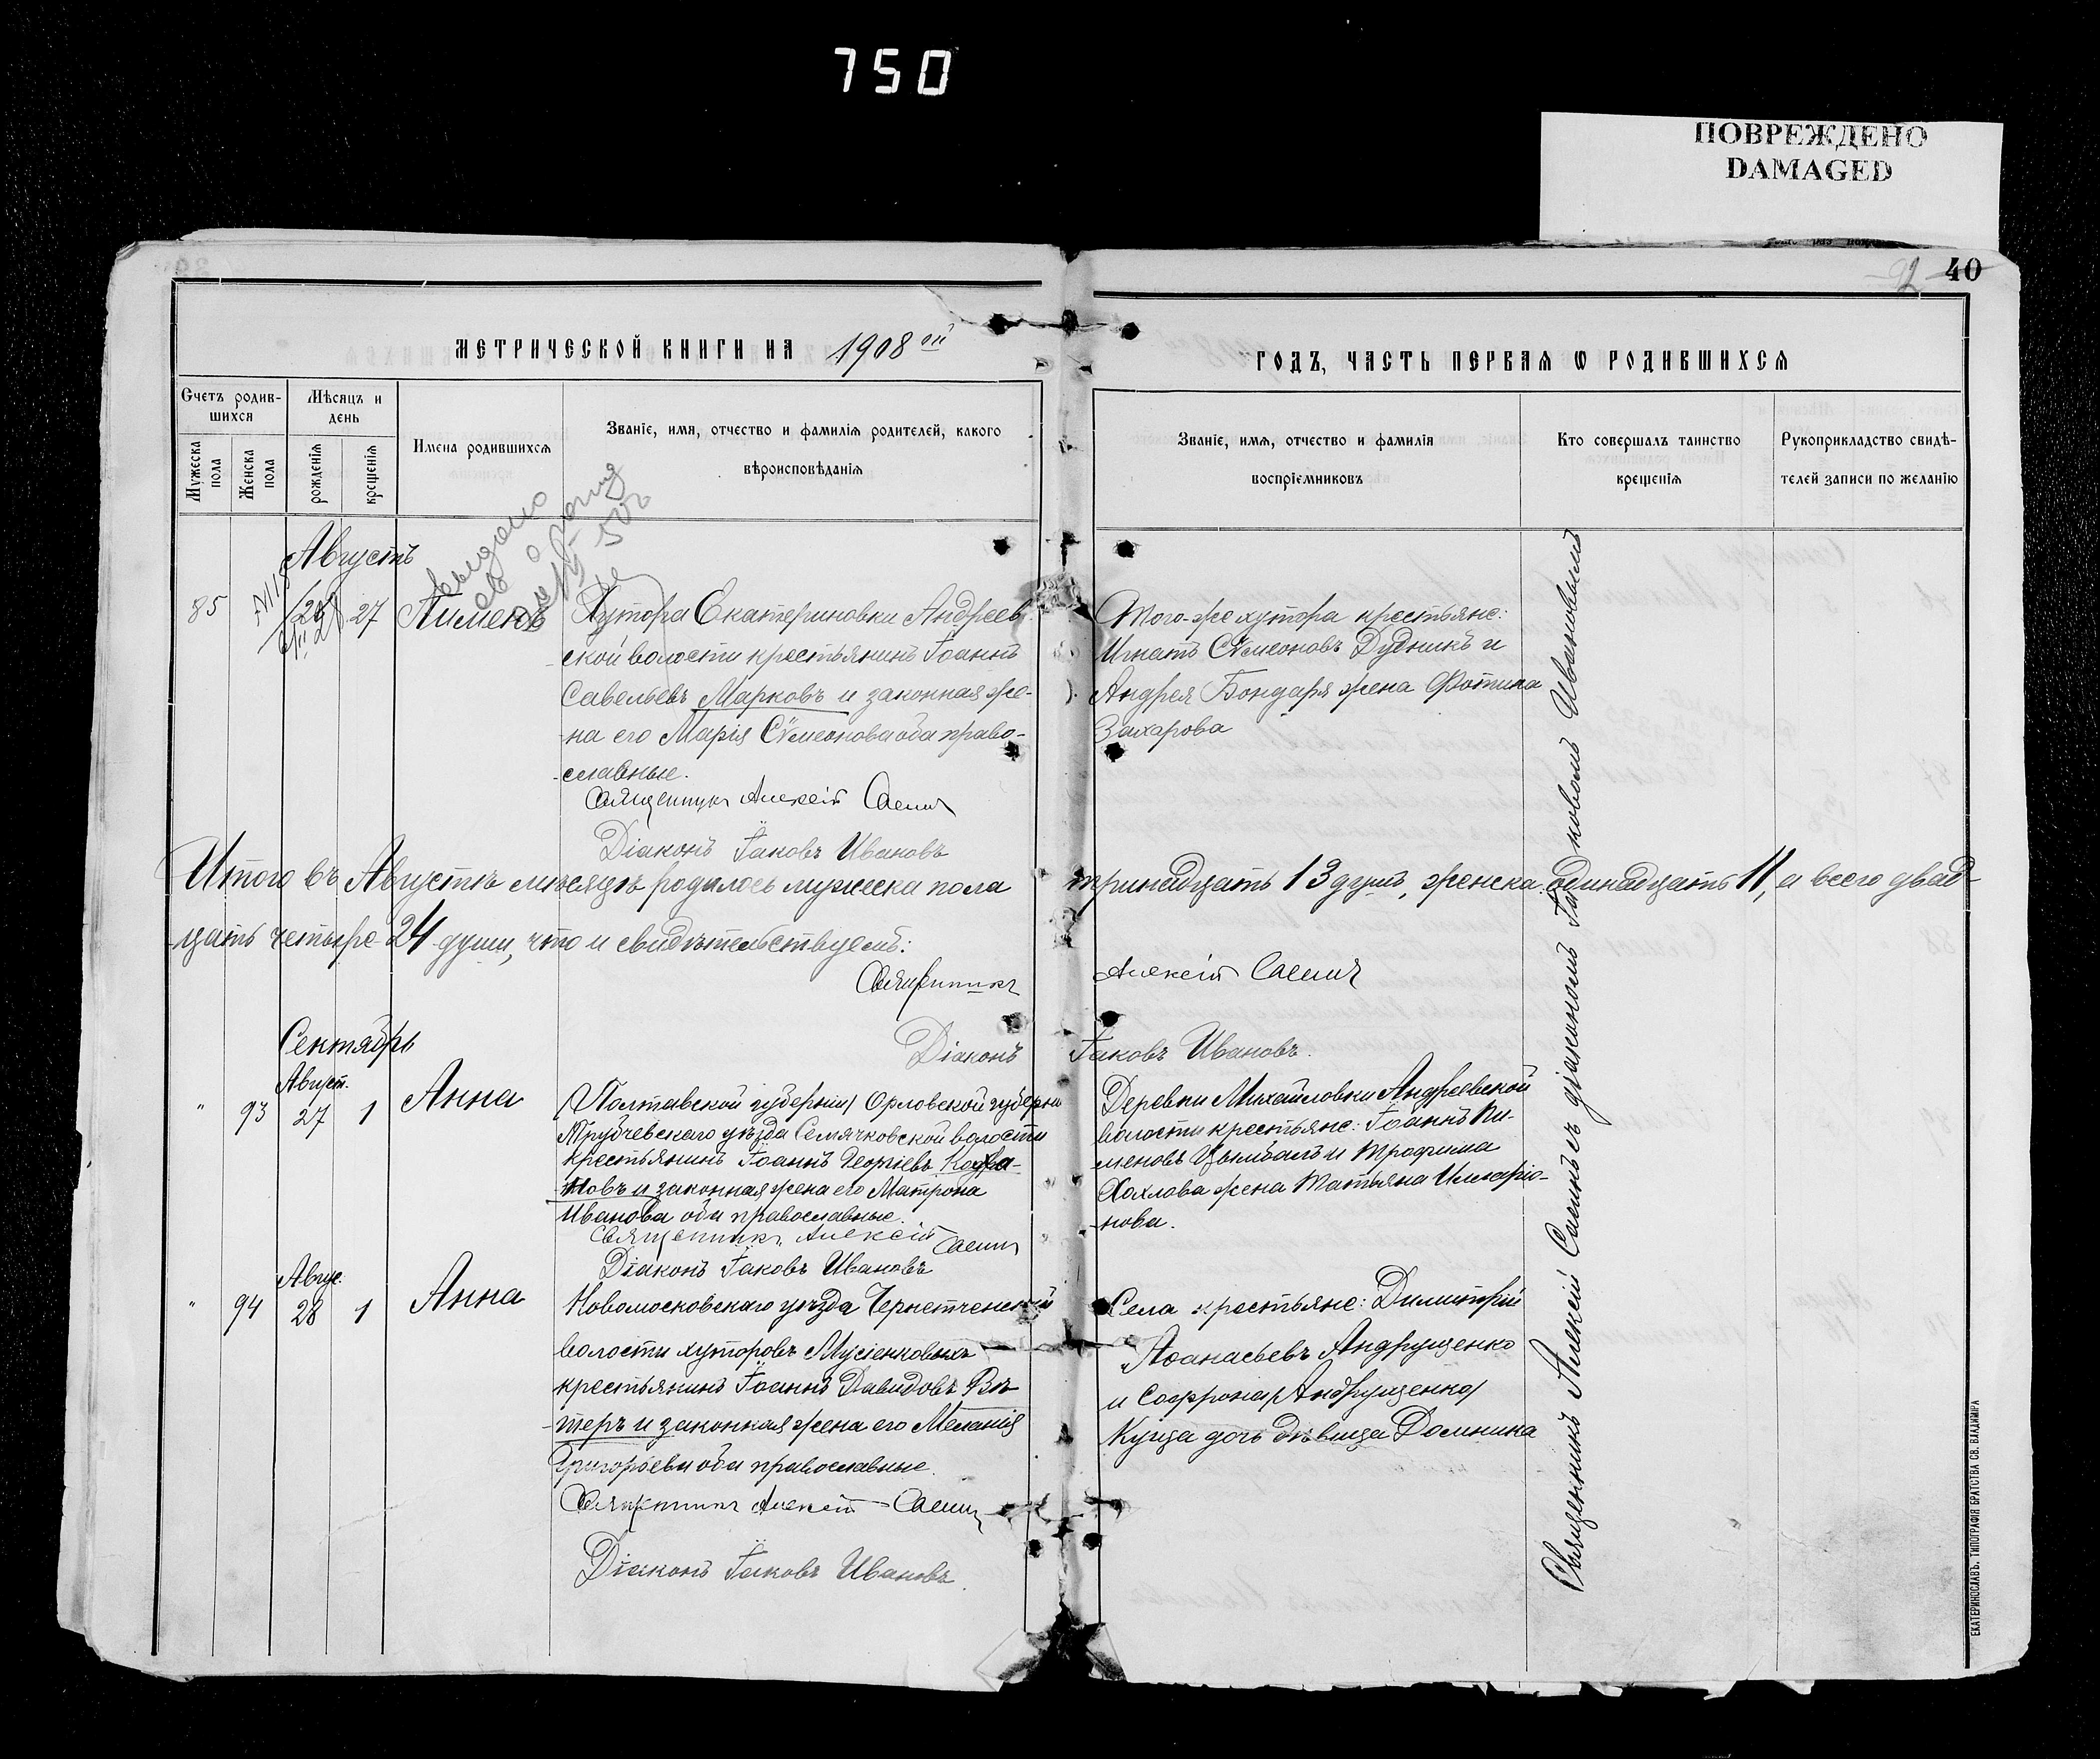 750
ПОВРЕЖДЕНО
DAMAGED
40
МЕТРИЧЕСКОЙ КНИГИ НА 1908 ой
ГОДЪ, ЧАСТЬ ПЕРВАЯ Ѡ РОДИВШИХСЯ
Счетъ родив-
шихся
Мужеска
пола
Женска
пола
Мѣсяцъ и
день
рожденія
крещенія
Имена родившихся
Званіе, имя, отчество и фамилія родителей, какого
вѣроисповѣданія
Званіе, имя, отчество и фамилія
воспріемниковъ
Кто совершалъ таинство
крещенія
Рукоприкладство свидѣ-
телей записи по желанію
Августъ
85
27
Пименъ
Хутора Екатериновки Андреев
ской волости крестьянинъ Іоаннъ
Савельевъ Марковъ и законная же-
на его Марія Сѵмеонова оба право-
славные.
Священникъ Алексій Саенъ
Діаконъ Іаковъ Ивановъ
Того-же хутора крестьяне:
Игнатъ Сѵмеоновъ Дудникъ и
Андрея Бондаря жена Фотина
Захарова
Итого въ Августѣ мѣсяцѣ родилось мужеска пола тринадцать 13 душъ, женска одинадцать 11, а всего двад-
цать четыре 24 души, что и свидѣтельствуемъ:
Священникъ Алексій Саенъ
Діаконъ Іаковъ Ивановъ.
Сентябрь
Август.
" 93 27 1
Анна
/Полтавской губерніи/ Орловской губерні
Трубчевскаго уѣзда Семячковской волости
крестьянинъ Іоаннъ Георгіевъ
новъ и законная жена его Матрона
Иванова оба православные.
Священникъ Алексій Саенъ
Діаконъ Іаковъ Ивановъ
Деревни Михайловки Андреевской
волости крестьяне: Іоаннъ Пи-
меновъ Цымбалъ и Трофима
Хохлова жена Татьяна Иларіо-
нова.
Авгус.
" 94 28 1
Анна
Новомосковскаго уѣзда
волости хуторовъ Мусіенковыхъ
крестьянинъ Іоаннъ Давидовъ Вѣ
теръ и законная жена его Меланія
Григорьева оба православные.
Священникъ Алексій Саенъ
Діаконъ Іаковъ Ивановъ.
Села крестьяне: Димитрій
Аѳанасьевъ Андрущенко
и Софрона /Андрущенко/
Куща дочь дѣвица Домника
Священникъ Алексій Саенъ съ діакономъ Іаковомъ Ивановымъ
ЕКАТЕРИНОСЛАВЪ. ТИПОГРАФІЯ БРАТСТВА СВ. ВЛАДИМІРА